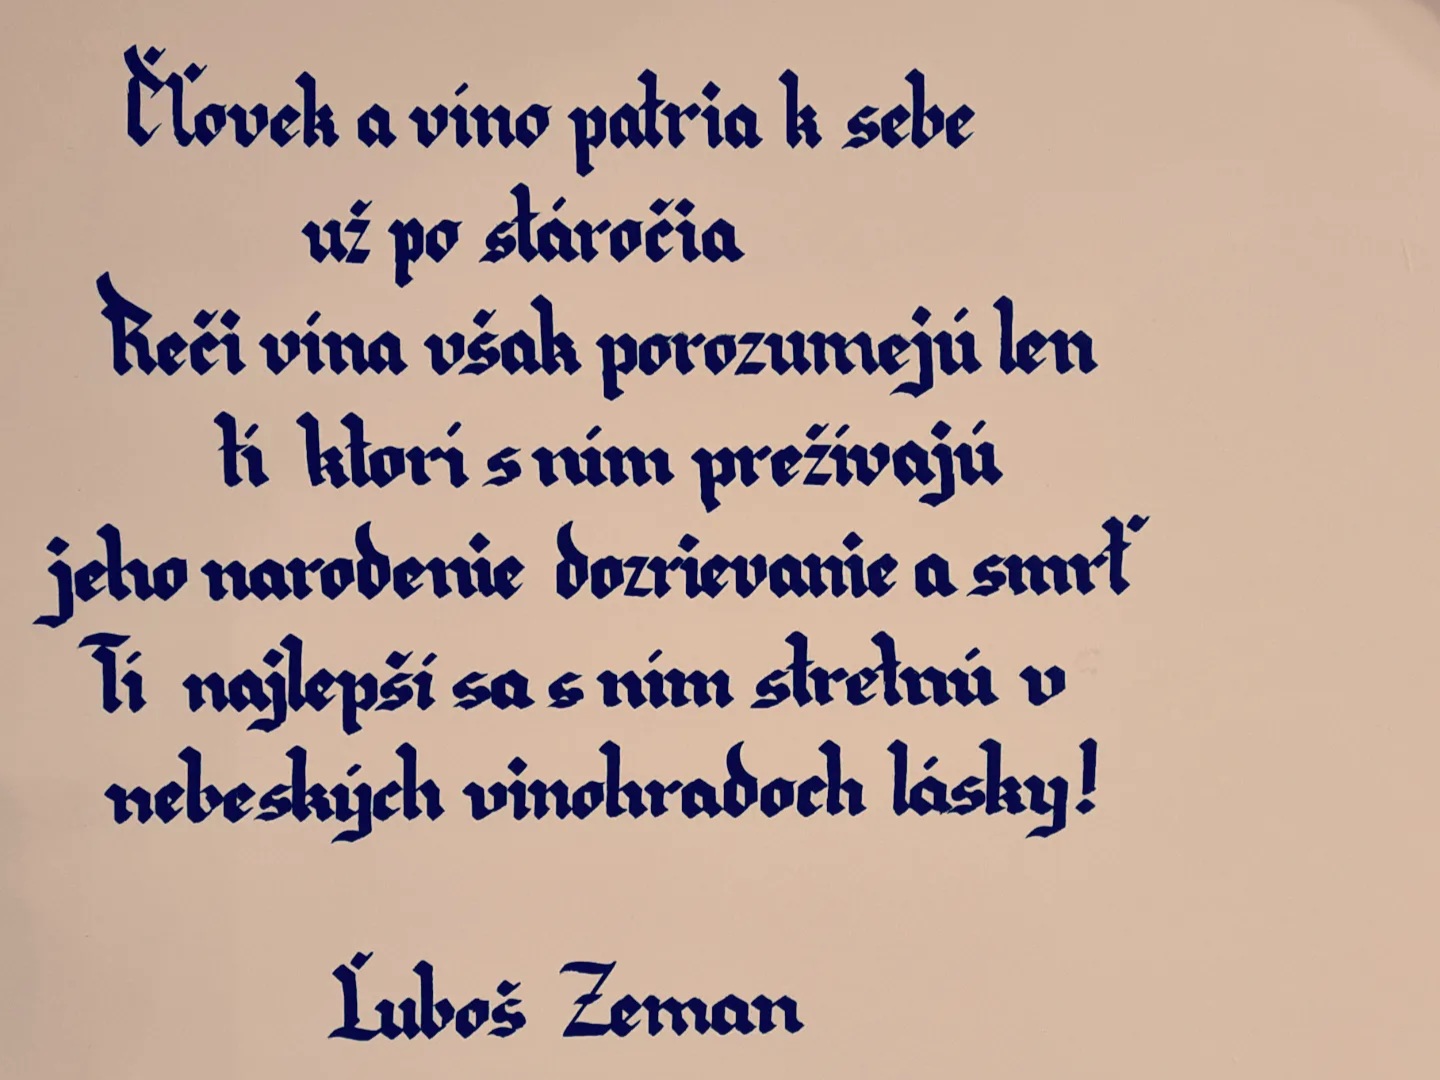 Čľovek a víno patria k sebe
už po stáročia
Reči vína však porozumejú len
tí ktorí s ním prežívajú
jeho narodenie dozrievanie a smrť
Tí najlepší sa s ním stretnú v
nebeských vinohradoch lásky!
Ľuboš Zeman